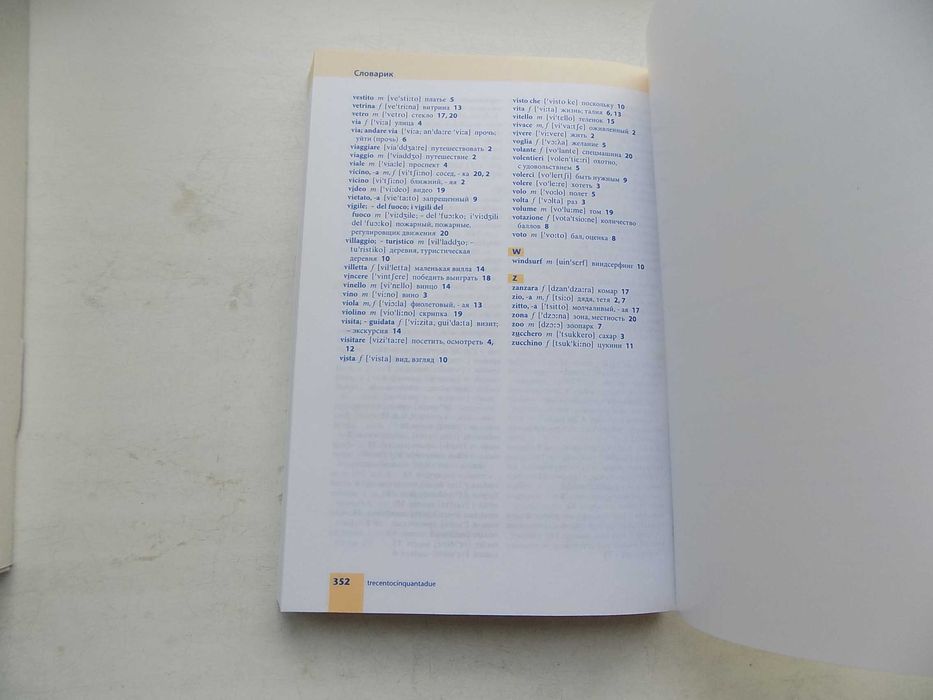 Словарик
vestito m [ve'sti:to] платье 5
vetrina f [ve'tri:na] витрина 13
vetro m ['vetro] стекло 17, 20
via f ['vi:a] улица 4
via; andare via ['vi:a; an'da:re 'vi:a] прочь;
уйти (прочь) 6
viaggiare [via'ddʒa:re] путешествовать 2
viaggio m ['viaddʒo] путешествие 2
viale m ['via:le] проспект 4
vicino, -a m, f [vi'tʃi:no] сосед, - ка 20, 2
vicino [vi'tʃi:no] ближний, - яя 2
video m ['vi:deo] видео 19
vietato, -a [vie'ta:to] запрещенный 9
vigile; ~ del fuoco; i vigili del
fuoco m ['vi:dʒile; ~ del 'fuɔ:ko; i'vi:dʒili
del 'fuɔ:ko] пожарный, пожарные,
регулировщик движения 20
villaggio; ~ turistico m [vil'laddʒo; ~
tu'ristiko] деревня, туристическая
деревня 10
villetta f [vil'letta] маленькая вилла 14
vincere ['vintʃere] победить выиграть 18
vinello m [vi'nɛllo] винцо 14
vino m ['vi:no] вино 3
viola m, f ['viɔ:la] фиолетовый, - ая 13
violino m [vio'li:no] скрипка 19
visita; ~ guidata f ['vi:zita, gui'da:ta] визит;
~ экскурсия 14
visitare [vizi'ta:re] посетить, осмотреть 4,
12
vista f ['vista] вид, взгляд 10
visto che ['visto ke] поскольку 10
vita f ['vi:ta] жизнь; талия 6, 13
vitello m [vi'tɛllo] теленок 15
vivace m, f [vi'va:tʃe] оживленный 2
vivere ['vi:vere] жить 2
voglia f ['vɔ:ʎa] желание 5
volante f [vo'lante] спецмашина 20
volentieri [volen'tiɛ:ri] охотно,
с удовольствием 5
volerci [vo'lertʃi] быть нужным 9
volere [vo'le:re] хотеть 3
volo m ['vo:lo] полет 5
volta f ['vɔlta] раз 3
volume m [vo'lu:me] том 19
votazione f [vota'tsio:ne] количество
баллов 8
voto m ['vo:to] бал, оценка 8
W
windsurf m [uin'sɛrf] виндсерфинг 10
Z
zanzara f [dzan'dza:ra] комар 17
zio, -a m, f [tsi:o] дядя, тетя 2, 7
zitto, -a ['tsitto] молчаливый, - ая 17
zona f ['dzɔ:na] зона, местность 20
zoo m [dzɔ:ɔ] зоопарк 7
zucchero m ['tsukkero] сахар 3
zucchino f [tsuk'ki:no] цукини 11
352 trecentocinquantadue